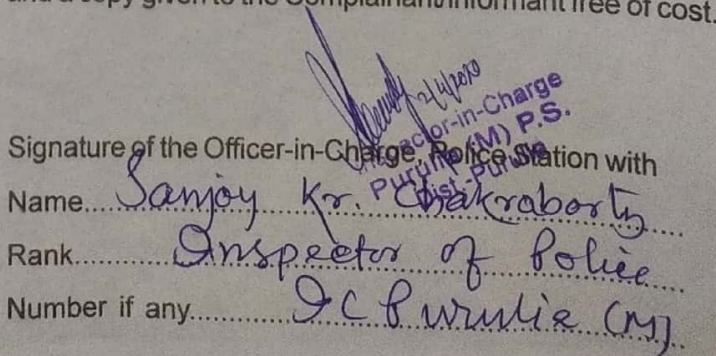 and a copy given to the Complainant/Informant free of cost.
2/4/2020
Inspector-in-Charge
Purulia (M) P.S.
Dist-Purulia
Signature of the Officer-in-Charge, Police Station with
Name....Sanjoy Kr. Chakraborty....
Rank............Inspector of Police....
Number if any..............IC Purulia (M)..